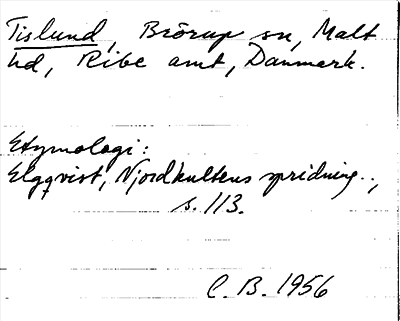 Tislund, Brörup sn, Malt
hd, Ribe amt, Danmark.
Etymologi:
Elgqvist, Njordkultens spridning.,
s. 113.
C. B. 1956